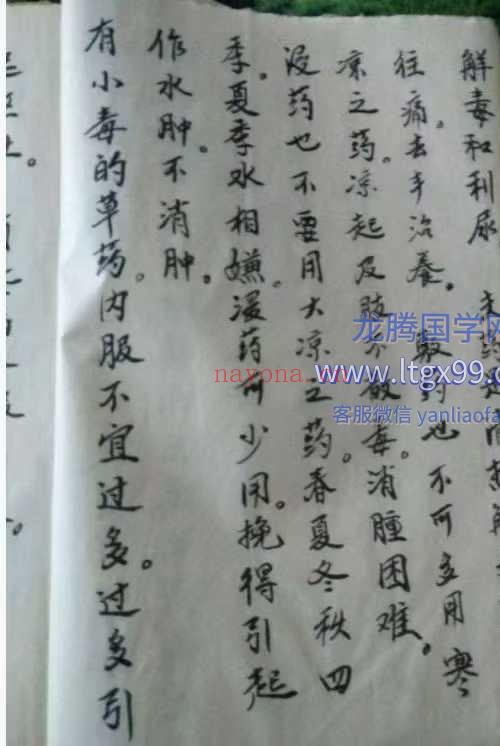 解毒和利尿
往痛。去丰治养。敷药也不可多用寒
凉之药。凉起及肢不散毒。消腫困难。
浸药也不要用大凉之药。春夏冬秩四
季。夏季水相嫌。浸药可少用。挽得引起
作水肿。不消肿。
有小毒的草药。内服不宜过多。过多引
龙腾国学网
www.ltgx99.c
客服微信 yanliaofa
nayona.cn